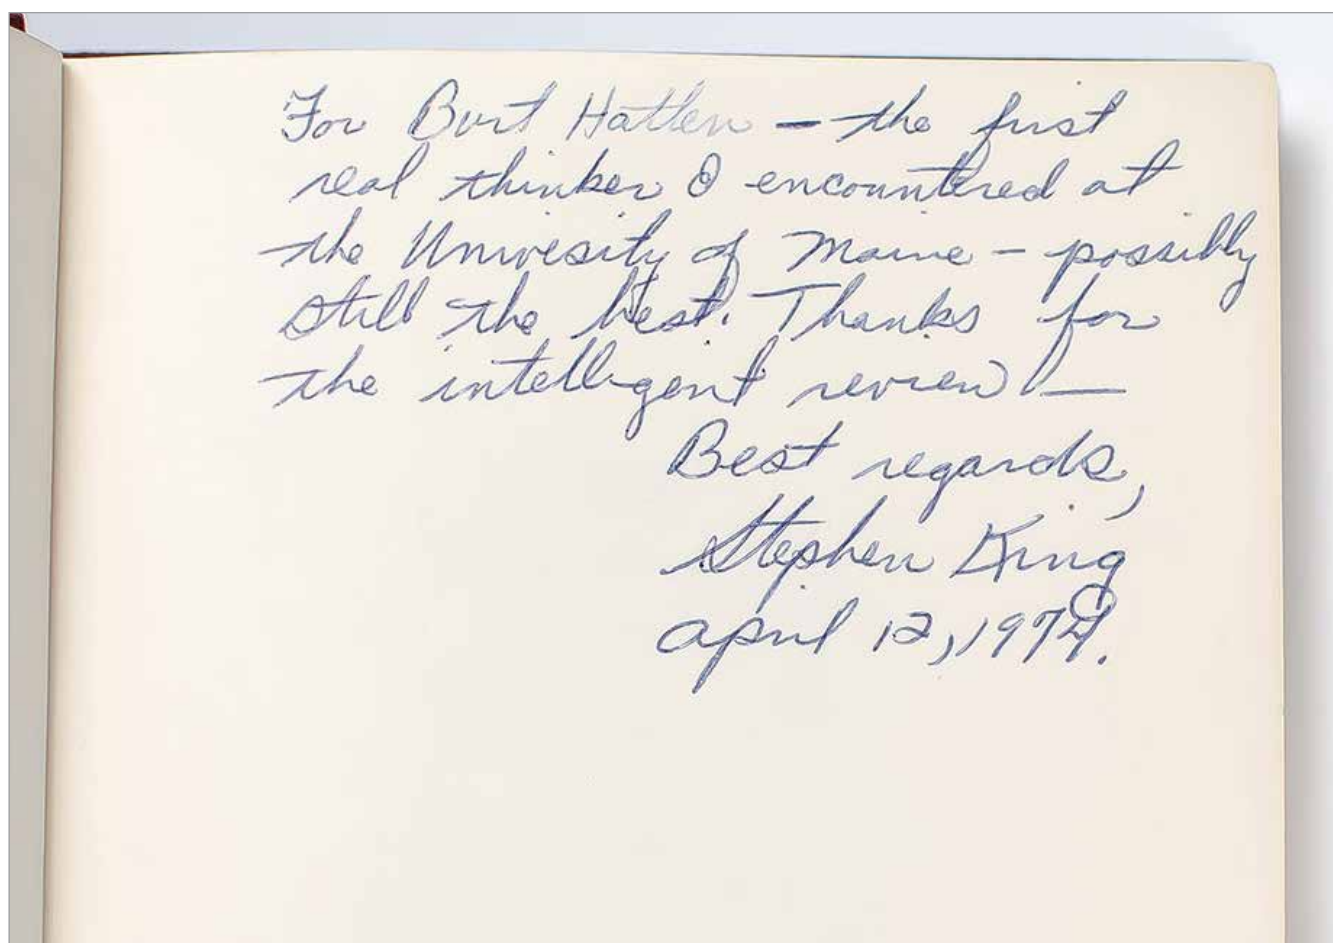 For Burt Hatlen – the first
real thinker I encountered at
the Univesity of Maine – possibly
still the best. Thanks for
the intelligent review –
Best regards,
Stephen King
April 12, 1974.